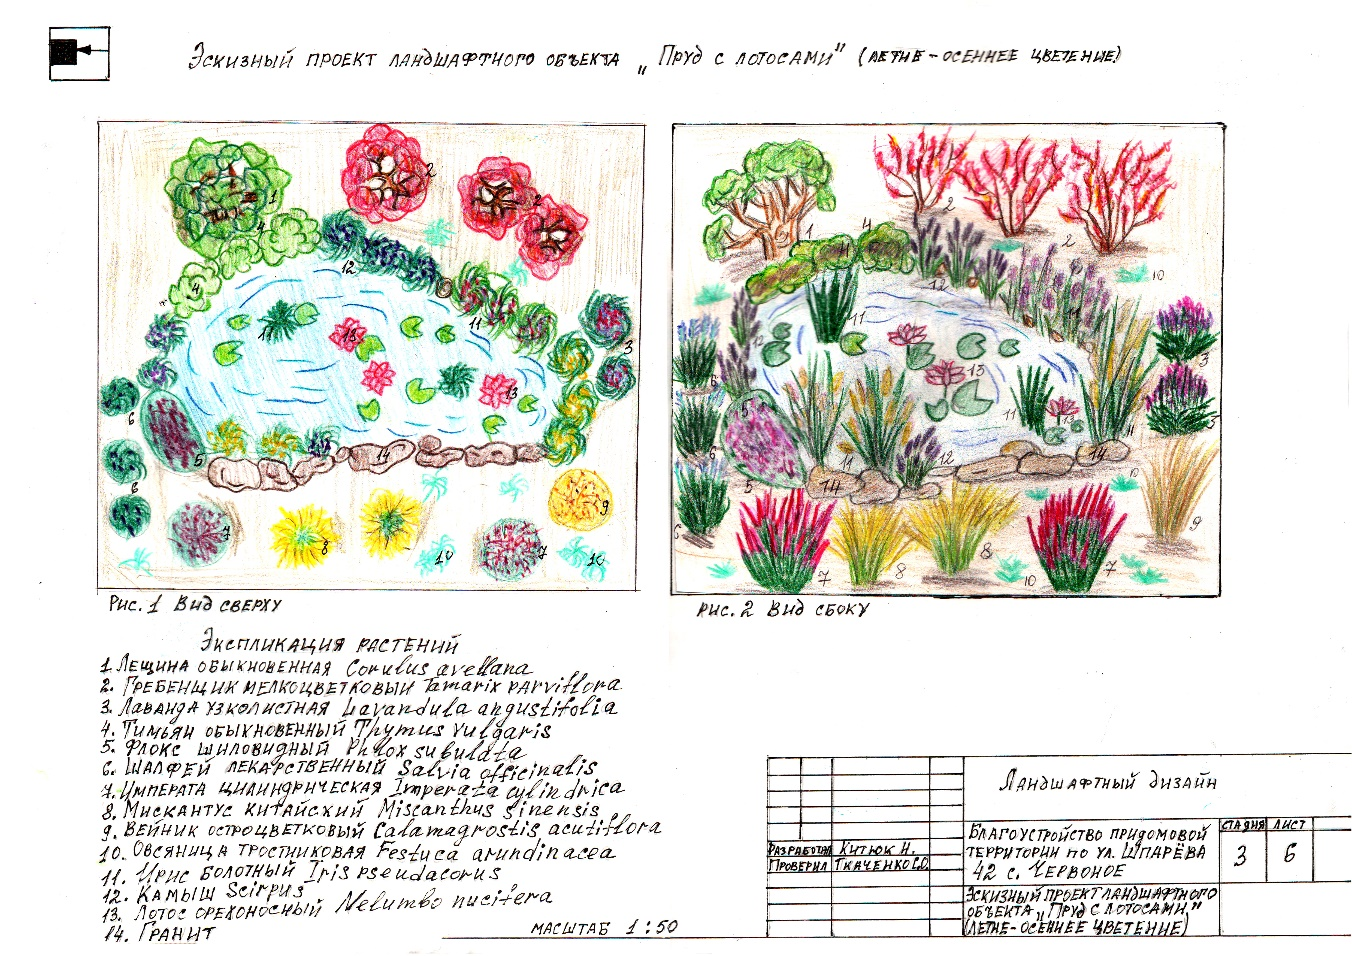 Эскизный проект ландшафтного объекта „Пруд с лотосами" (летне-осеннее цветение)
Рис. 1 Вид сверху
Рис. 2 Вид сбоку
Экспликация растений
1. Лещина обыкновенная Corulus avellana
2. Гребенщик мелкоцветковый Tamarix parviflora
3. Лаванда узколистная Lavandula angustifolia
4. Тимьян обыкновенный Thymus vulgaris
5. Флокс шиловидный Phlox subulata
6. Шалфей лекарственный Salvia officinalis
7. Императа цилиндрическая Imperata cylindrica
8. Мискантус китайский Miscanthus sinensis
9. Вейник остроцветковый Calamagrostis acutiflora
10. Овсяница тростниковая Festuca arundinacea
11. Ирис болотный Iris pseudacorus
12. Камыш Scirpus
13. Лотос орехоносный Nelumbo nucifera
14. Гранит
Масштаб 1:50
Ландшафтный дизайн
Благоустройство придомовой
территории по ул. Шпарёва
42 с. Червоное
Стадия Лист
3 6
Разработал Китюк Н.
Проверил Ткаченко С.О.
Эскизный проект ландшафтного
объекта „Пруд с лотосами"
(летне-осеннее цветение)